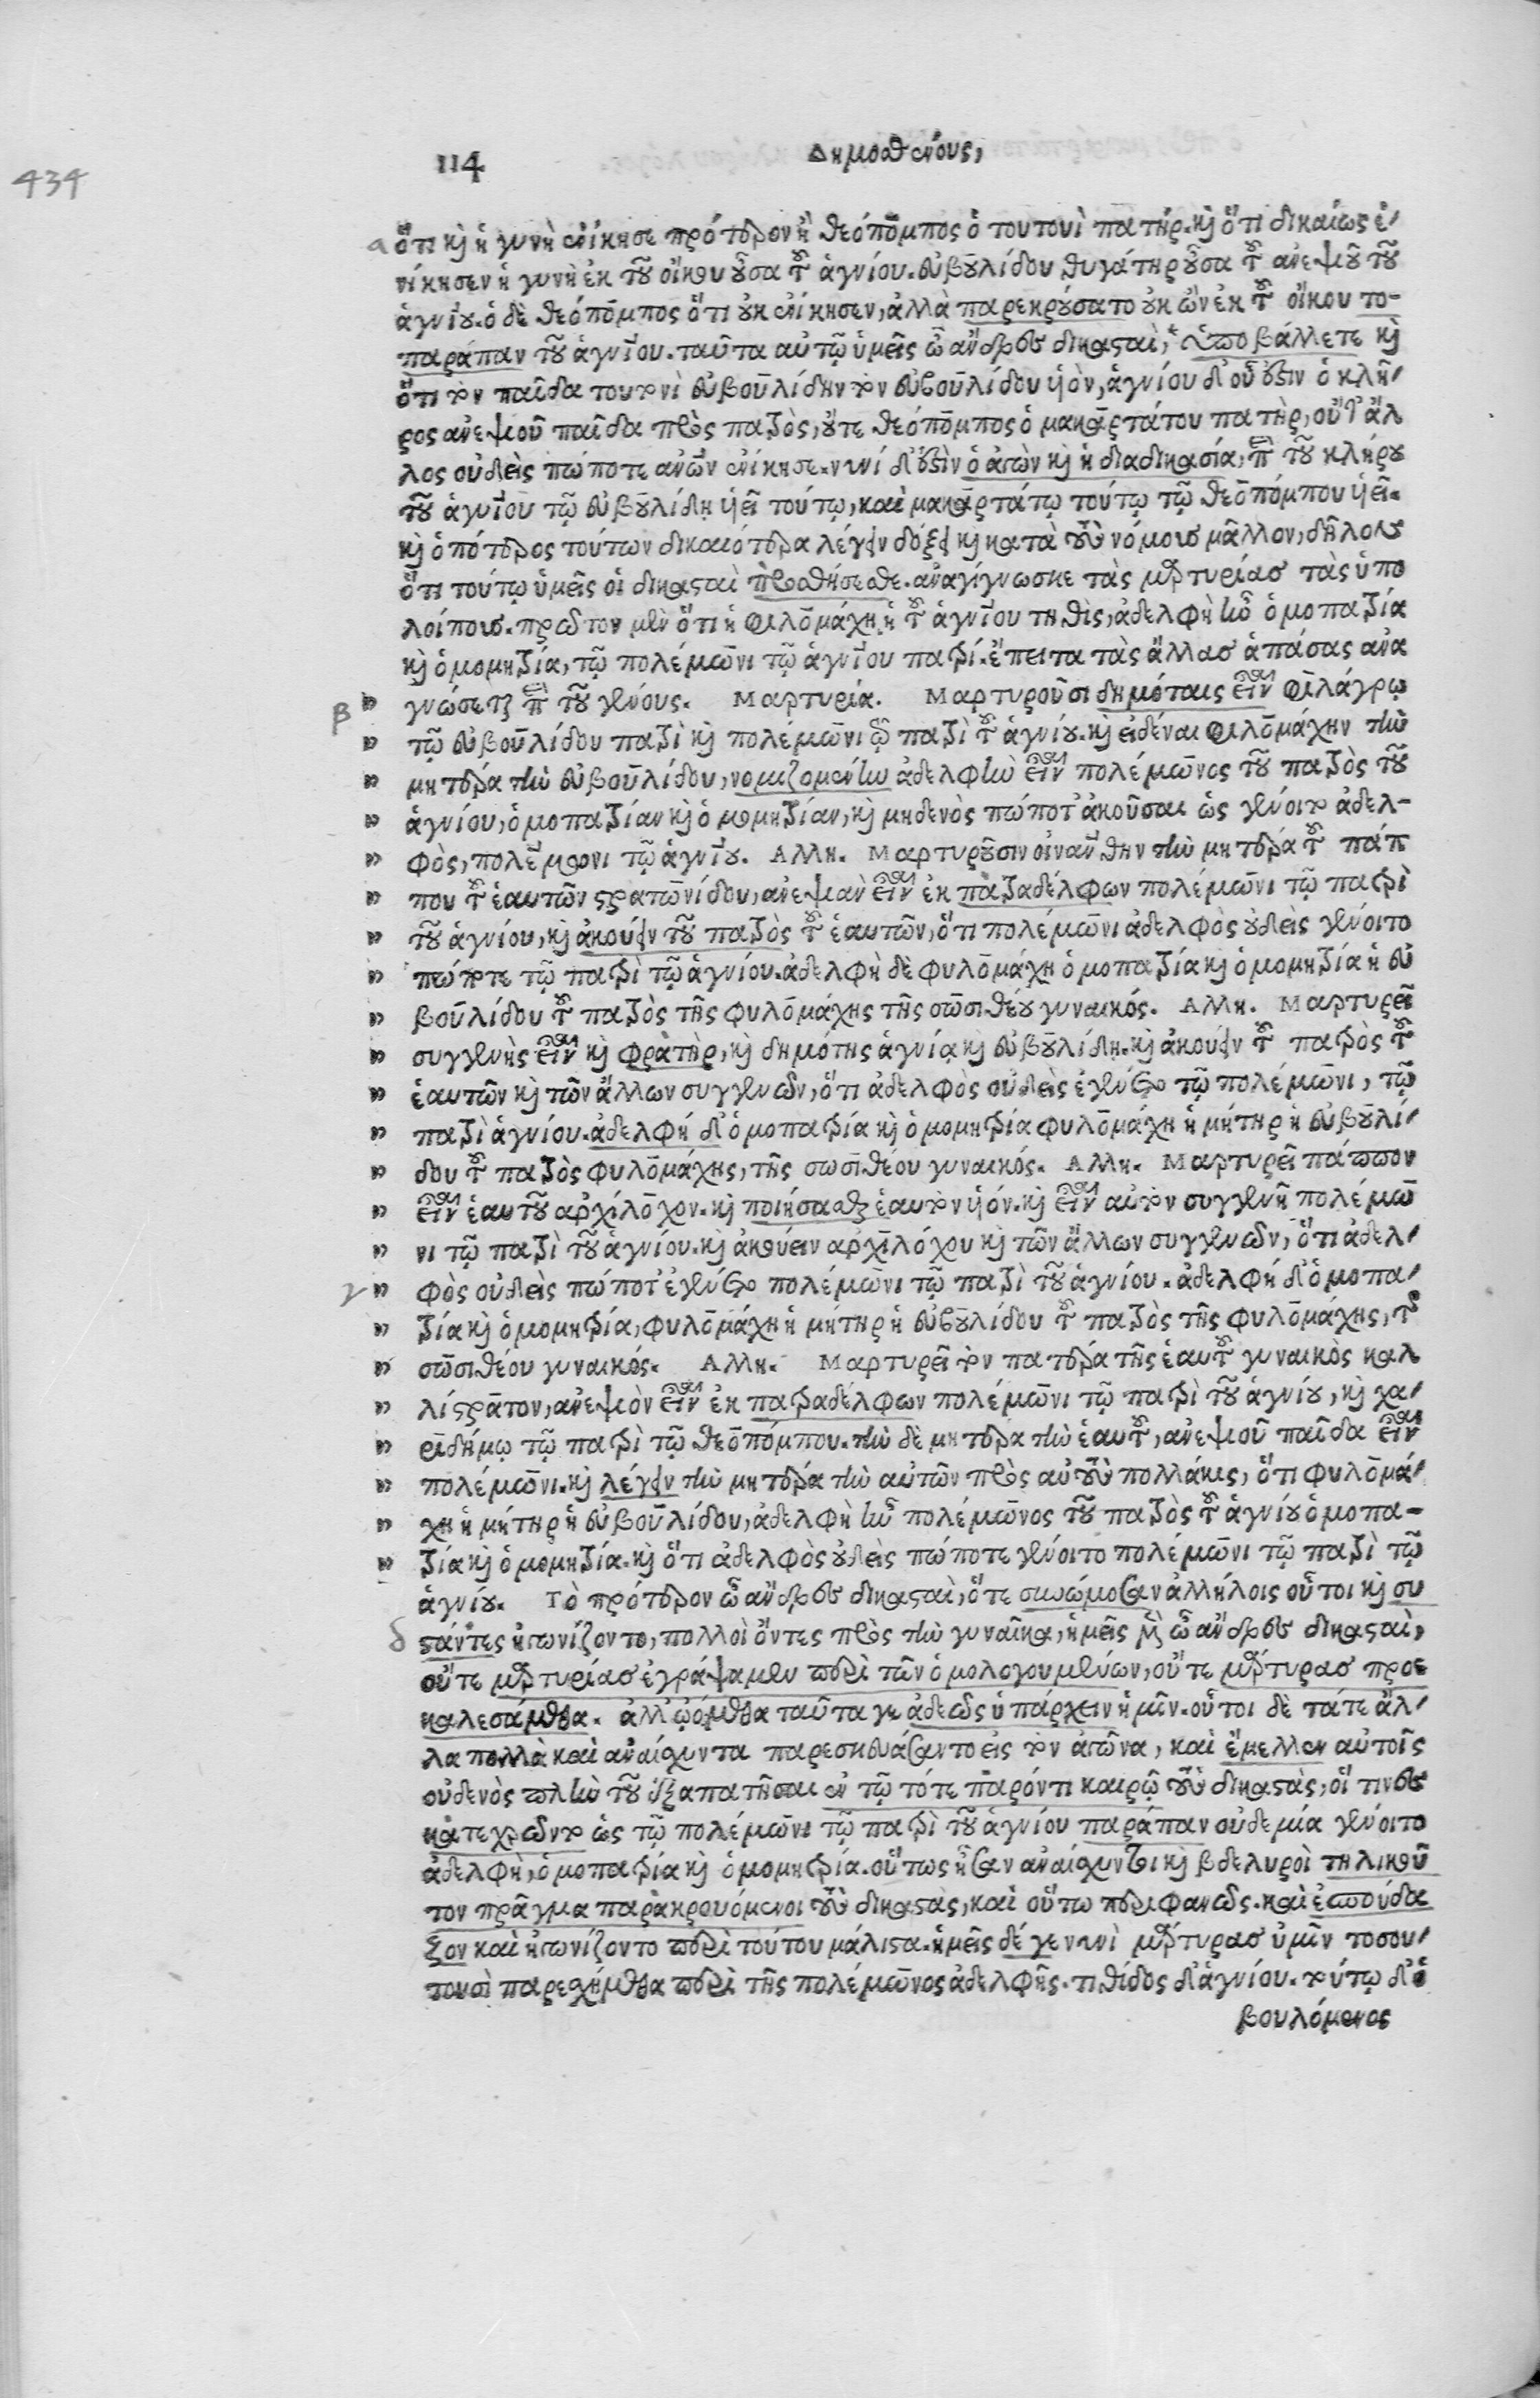 434
114
Δημοσθένους,
α ὅτι καὶ ἡ γυνὴ ἐνίκησε πρότερον ἢ θεόπομπος ὁ τουτουὶ πατήρ. καὶ ὅτι δικαίως ἐ-
νίκησεν ἡ γυνὴ ἐκ τοῦ οἴκου οὖσα τοῦ ἁγνίου. εὐβουλίδου θυγάτηρ οὖσα τοῦ ἀνεψιοῦ τοῦ
ἁγνίου. ὁ δὲ θεόπομπος ὅτι οὐκ ἐνίκησεν, ἀλλὰ παρεκρούσατο οὐκ ὢν ἐκ τοῦ οἴκου το-
παράπαν τοῦ ἁγνίου. ταῦτα αὐτῷ ὑμεῖς ὦ ἄνδρες δικασταὶ, ὑποβάλλετε καὶ
ὅτι τὸν παῖδα τουτονὶ εὐβουλίδην τὸν εὐβουλίδου ὑὸν, ἁγνίου δ' οὗ ἐστιν ὁ κλῆ-
ρος ἀνεψιοῦ παῖδα πρὸς πατρὸς, οὔτε θεόπομπος ὁ μακαρτάτου πατὴρ, οὔτ' ἄλ
λος οὐδεὶς πώποτε ἀνθρώπων ἐνίκησε. νυνί δ' ἐστὶν ὁ ἀγὼν καὶ ἡ διαδικασία, ἐπὶ τοῦ κλήρου
τοῦ ἁγνίου τῷ εὐβουλίδῃ ὑεῖ τούτῳ, καὶ μακαρτάτῳ τούτῳ τῷ θεοπόμπου ὑεῖ.
καὶ ὁπότερος τούτων δικαιότερα λέγειν δόξει καὶ κατὰ τοὺς νόμους μᾶλλον, δηλονότι
ὅτι τούτῳ ὑμεῖς οἱ δικασταὶ προσθήσεσθε. ἀναγίγνωσκε τὰς μαρτυρίας τὰς ὑπο
λοίπους. πρῶτον μὲν ὅτι ἡ φιλομάχη ἡ τοῦ ἁγνίου τηθὶς, ἀδελφὴ ἦν ὁμοπατρία
καὶ ὁμομητρία, τῷ πολέμωνι τῷ ἁγνίου πατρί. ἔπειτα τὰς ἄλλας ἁπάσας ἀνα
β » γνώσεται ἐπὶ τοῦ γένους. Μαρτυρία. Μαρτυροῦσι δημόταις εἶναι φιλάγρῳ
» τῷ εὐβουλίδου πατρὶ καὶ πολέμωνι τῷ πατρὶ τοῦ ἁγνίου. καὶ εἰδέναι φιλομάχην τὴν
» μητέρα τὴν εὐβουλίδου, νομιζομένην ἀδελφὴν εἶναι πολέμωνος τοῦ πατρὸς τοῦ
» ἁγνίου, ὁμοπατρίαν καὶ ὁμομητρίαν, καὶ μηδενὸς πώποτ' ἀκοῦσαι ὡς γένοιτο ἀδελ-
» φὸς, πολέμωνι τῷ ἁγνίου. Αλλη. Μαρτυροῦσιν οἰνάνθην τὴν μητέρα τοῦ πάπ
» που τοῦ ἑαυτῶν στρατωνίδου, ἀνεψιὰν εἶναι ἐκ πατραδέλφων πολέμωνι τῷ πατρὶ
» τοῦ ἁγνίου, καὶ ἀκούειν τοῦ πατρὸς τοῦ ἑαυτῶν, ὅτι πολέμωνι ἀδελφὸς οὐδεὶς γένοιτο
» πώποτε τῷ πατρὶ τῷ ἁγνίου. ἀδελφὴ δὲ φυλομάχη ὁμοπατρία καὶ ὁμομητρία ἡ εὐ
» βουλίδου τοῦ πατρὸς τῆς φυλομάχης τῆς σωσιθέου γυναικός. Αλλη. Μαρτυρεῖ
» συγγενὴς εἶναι καὶ φράτηρ, καὶ δημότης ἁγνίᾳ καὶ εὐβουλίδῃ. καὶ ἀκούειν τοῦ πατρὸς τοῦ
» ἑαυτῶν καὶ τῶν ἄλλων συγγενῶν, ὅτι ἀδελφὸς οὐδεὶς ἐγένετο τῷ πολέμωνι, τῷ
» πατρὶ ἁγνίου. ἀδελφή δ' ὁμοπατρία καὶ ὁμομητρία φυλομάχη ἡ μήτηρ ἡ εὐβουλί-
» δου τοῦ πατρὸς φυλομάχης, τῆς σωσιθέου γυναικός. Αλλη. Μαρτυρεῖ πάππον
» εἶναι ἑαυτοῦ ἀρχίλοχον. καὶ ποιήσασθαι ἑαυτὸν ὑόν. καὶ εἶναι αὐτὸν συγγενῆ πολέμω
» νι τῷ πατρὶ τοῦ ἁγνίου. καὶ ἀκούειν ἀρχιλόχου καὶ τῶν ἄλλων συγγενῶν, ὅτι ἀδελ-
γ » φὸς οὐδεὶς πώποτ' ἐγένετο πολέμωνι τῷ πατρὶ τοῦ ἁγνίου. ἀδελφή δ' ὁμοπα-
» τρία καὶ ὁμομητρία, φυλομάχη ἡ μήτηρ ἡ εὐβουλίδου τοῦ πατρὸς τῆς φυλομάχης, τῆς
» σωσιθέου γυναικός. Αλλη. Μαρτυρεῖ τὸν πατέρα τῆς ἑαυτοῦ γυναικὸς καλ
» λίστρατον, ἀνεψιὸν εἶναι ἐκ πατραδέλφων πολέμωνι τῷ πατρὶ τοῦ ἁγνίου, καὶ χα-
» ριδήμῳ τῷ πατρὶ τῷ θεοπόμπου. τὴν δὲ μητέρα τὴν ἑαυτοῦ, ἀνεψιοῦ παῖδα εἶναι
» πολέμωνι. καὶ λέγειν τὴν μητέρα τὴν αὐτῶν πρὸς αὐτοὺς πολλάκις, ὅτι φυλομά-
» χη ἡ μήτηρ ἡ εὐβουλίδου, ἀδελφὴ ἦν πολέμωνος τοῦ πατρὸς τοῦ ἁγνίου ὁμοπα-
» τρία καὶ ὁμομητρία. καὶ ὅτι ἀδελφὸς οὐδεὶς πώποτε γένοιτο πολέμωνι τῷ πατρὶ τῷ
ἁγνίου. Τὸ πρότερον ὦ ἄνδρες δικασταὶ, ὅτε συνώμοσαν ἀλλήλοις οὗτοι καὶ συ
δ στάντες ἠγωνίζοντο, πολλοὶ ὄντες πρὸς τὴν γυναῖκα, ἡμεῖς μὲν ὦ ἄνδρες δικασταὶ,
οὔτε μαρτυρίας ἐγράψαμεν περὶ τῶν ὁμολογουμένων, οὔτε μάρτυρας προε
καλεσάμεθα. ἀλλ' ᾠόμεθα ταῦτα γε ἀδεῶς ὑπάρχειν ἡμῖν. οὗτοι δὲ τάτε ἄλ-
λα πολλὰ καὶ ἀναίσχυντα παρεσκευάσαντο εἰς τὸν ἀγῶνα, καὶ ἔμελλεν αὐτοῖς
οὐδενὸς πλὴν τοῦ ἐξαπατῆσαι ἐν τῷ τότε παρόντι καιρῷ τοὺς δικαστὰς, οἵ τινες
κατεχρῶντο ὡς τῷ πολέμωνι τῷ πατρὶ τοῦ ἁγνίου παράπαν οὐδεμία γένοιτο
ἀδελφὴ, ὁμοπατρία καὶ ὁμομητρία. οὕτως ἦσαν ἀναίσχυντοι καὶ βδελυροὶ τηλικοῦ
τον πρᾶγμα παρακρουόμενοι τοὺς δικαστὰς, καὶ οὕτω περιφανῶς. καὶ ἐσπούδα
ζον καὶ ἠγωνίζοντο περὶ τούτου μάλιστα. ἡμεῖς δέ γε νυνὶ μάρτυρας ὑμῖν τοσου-
τουσὶ παρεσχήμεθα περὶ τῆς πολέμωνος ἀδελφῆς. τιθίδος δ' ἁγνίου. τούτῳ δ' ὁ
βουλόμενος